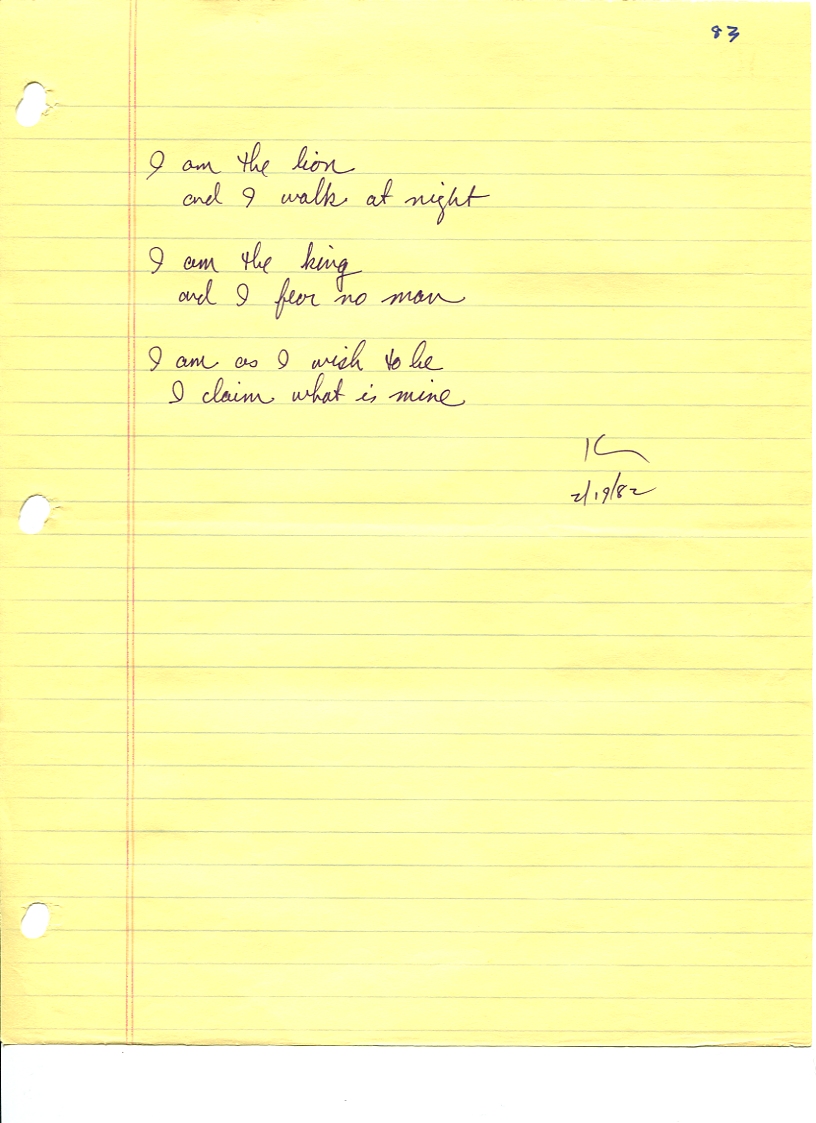 83
I am the lion
and I walk at night
I am the king
and I fear no man
I am as I wish to be
I claim what is mine
K
2/19/82